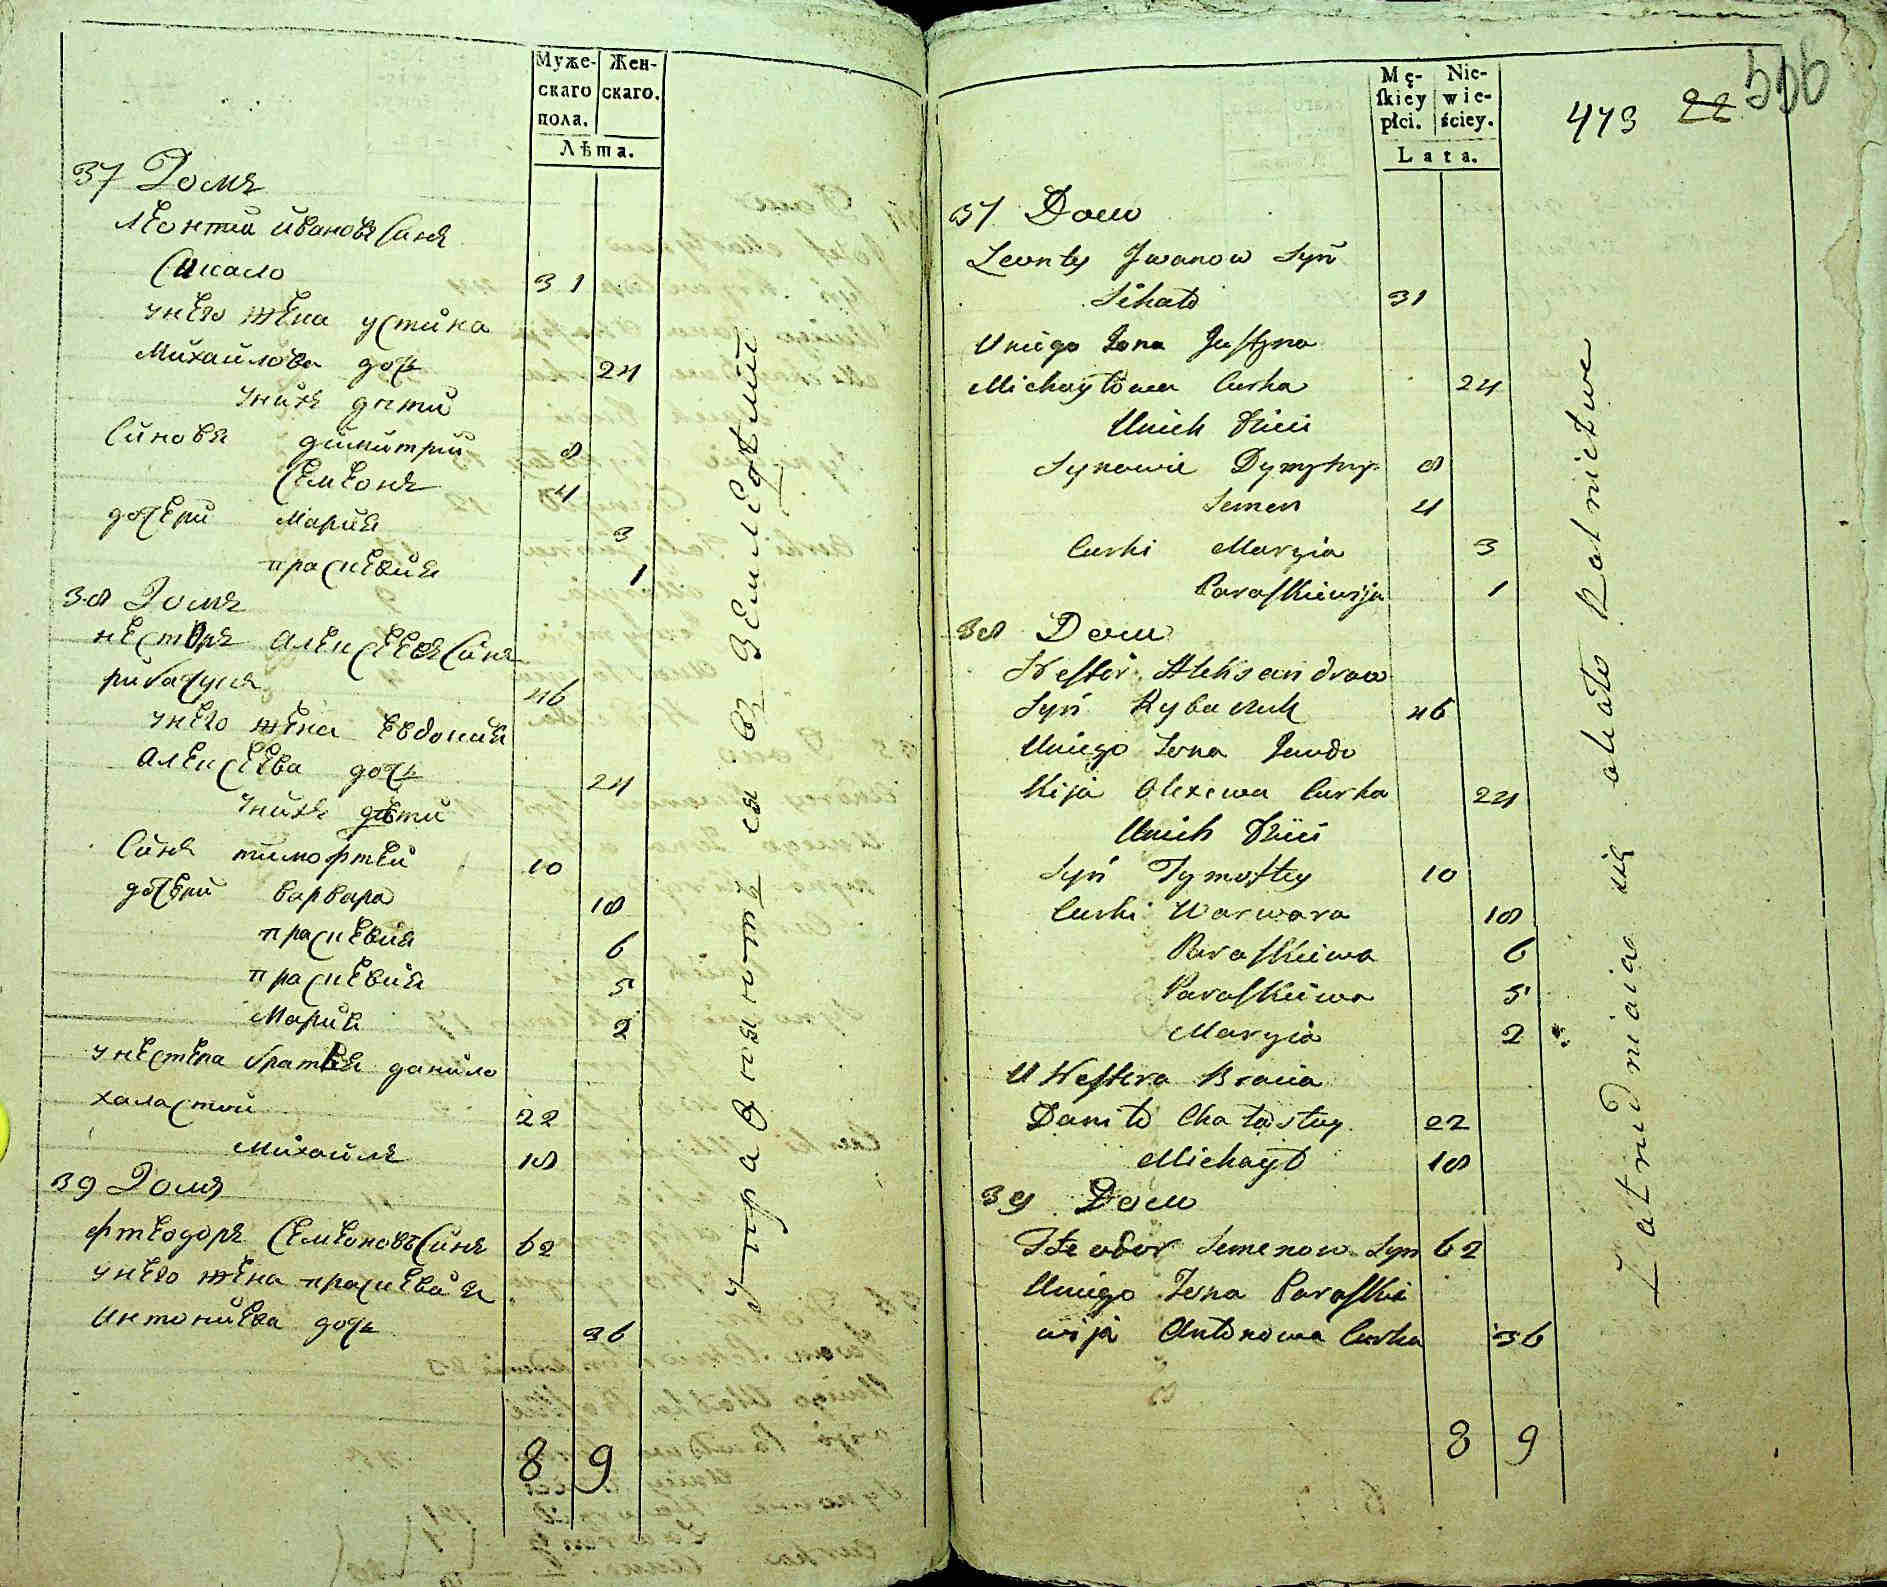 Муже- Жен-
скаго скаго.
пола.
Лѣта.
37 Домъ
Леонтий Ивановъ Синъ
Сикало 31
унего жена устина
Михайлова дочь 24
унихъ дѣти
Синовя димитрий 8
Семенъ 4
дочери Мария 3
праскевия 1
38 Домъ
несторъ алексеевъ Синъ
рибачукъ 46
унего жена евдокия
алексеева дочь 24
унихъ дѣти
Синъ тимофтей 10
дочери варвара 18
праскевия 6
праскевия 5
Мария 2
унестера братья данило
халастой 22
Михайлъ 18
39 Домъ
фтеодоръ Семеновъ Синъ 62
унего жена праскевия
Антониева дочь 36
8 9
упражняются въ земледѣлии
Mę- Nie-
skiey wie-
płci. ściey.
Lata.
473 22 506
37 Dom
Leonty Jwanow Syn
Sikało 31
Uniego Zona Justyna
Michayłowa Curka 24
Unich Dzieci
Synowie Dymytry 8
Semen 4
Curki Maryia 3
Paraskiewija 1
38 Dom
Nestor Aleksandrow
Syn Rybaczuk 46
Uniego Zona Jewdo
kija Olexewa Curka 24
Unich Dzieci
Syn Tymoftey 10
Curki Warwara 18
Paraskiewa 6
Paraskiewa 5
Maryia 2
U Nestera Bracia
Daniło Chałastuy 22
Michayło 18
39 Dom
Fteodor Semenow Syn 62
Uniego Zona Paraskie
wija Antonowa Curka 36
8 9
Zatrudniaia się około Rolnictwa